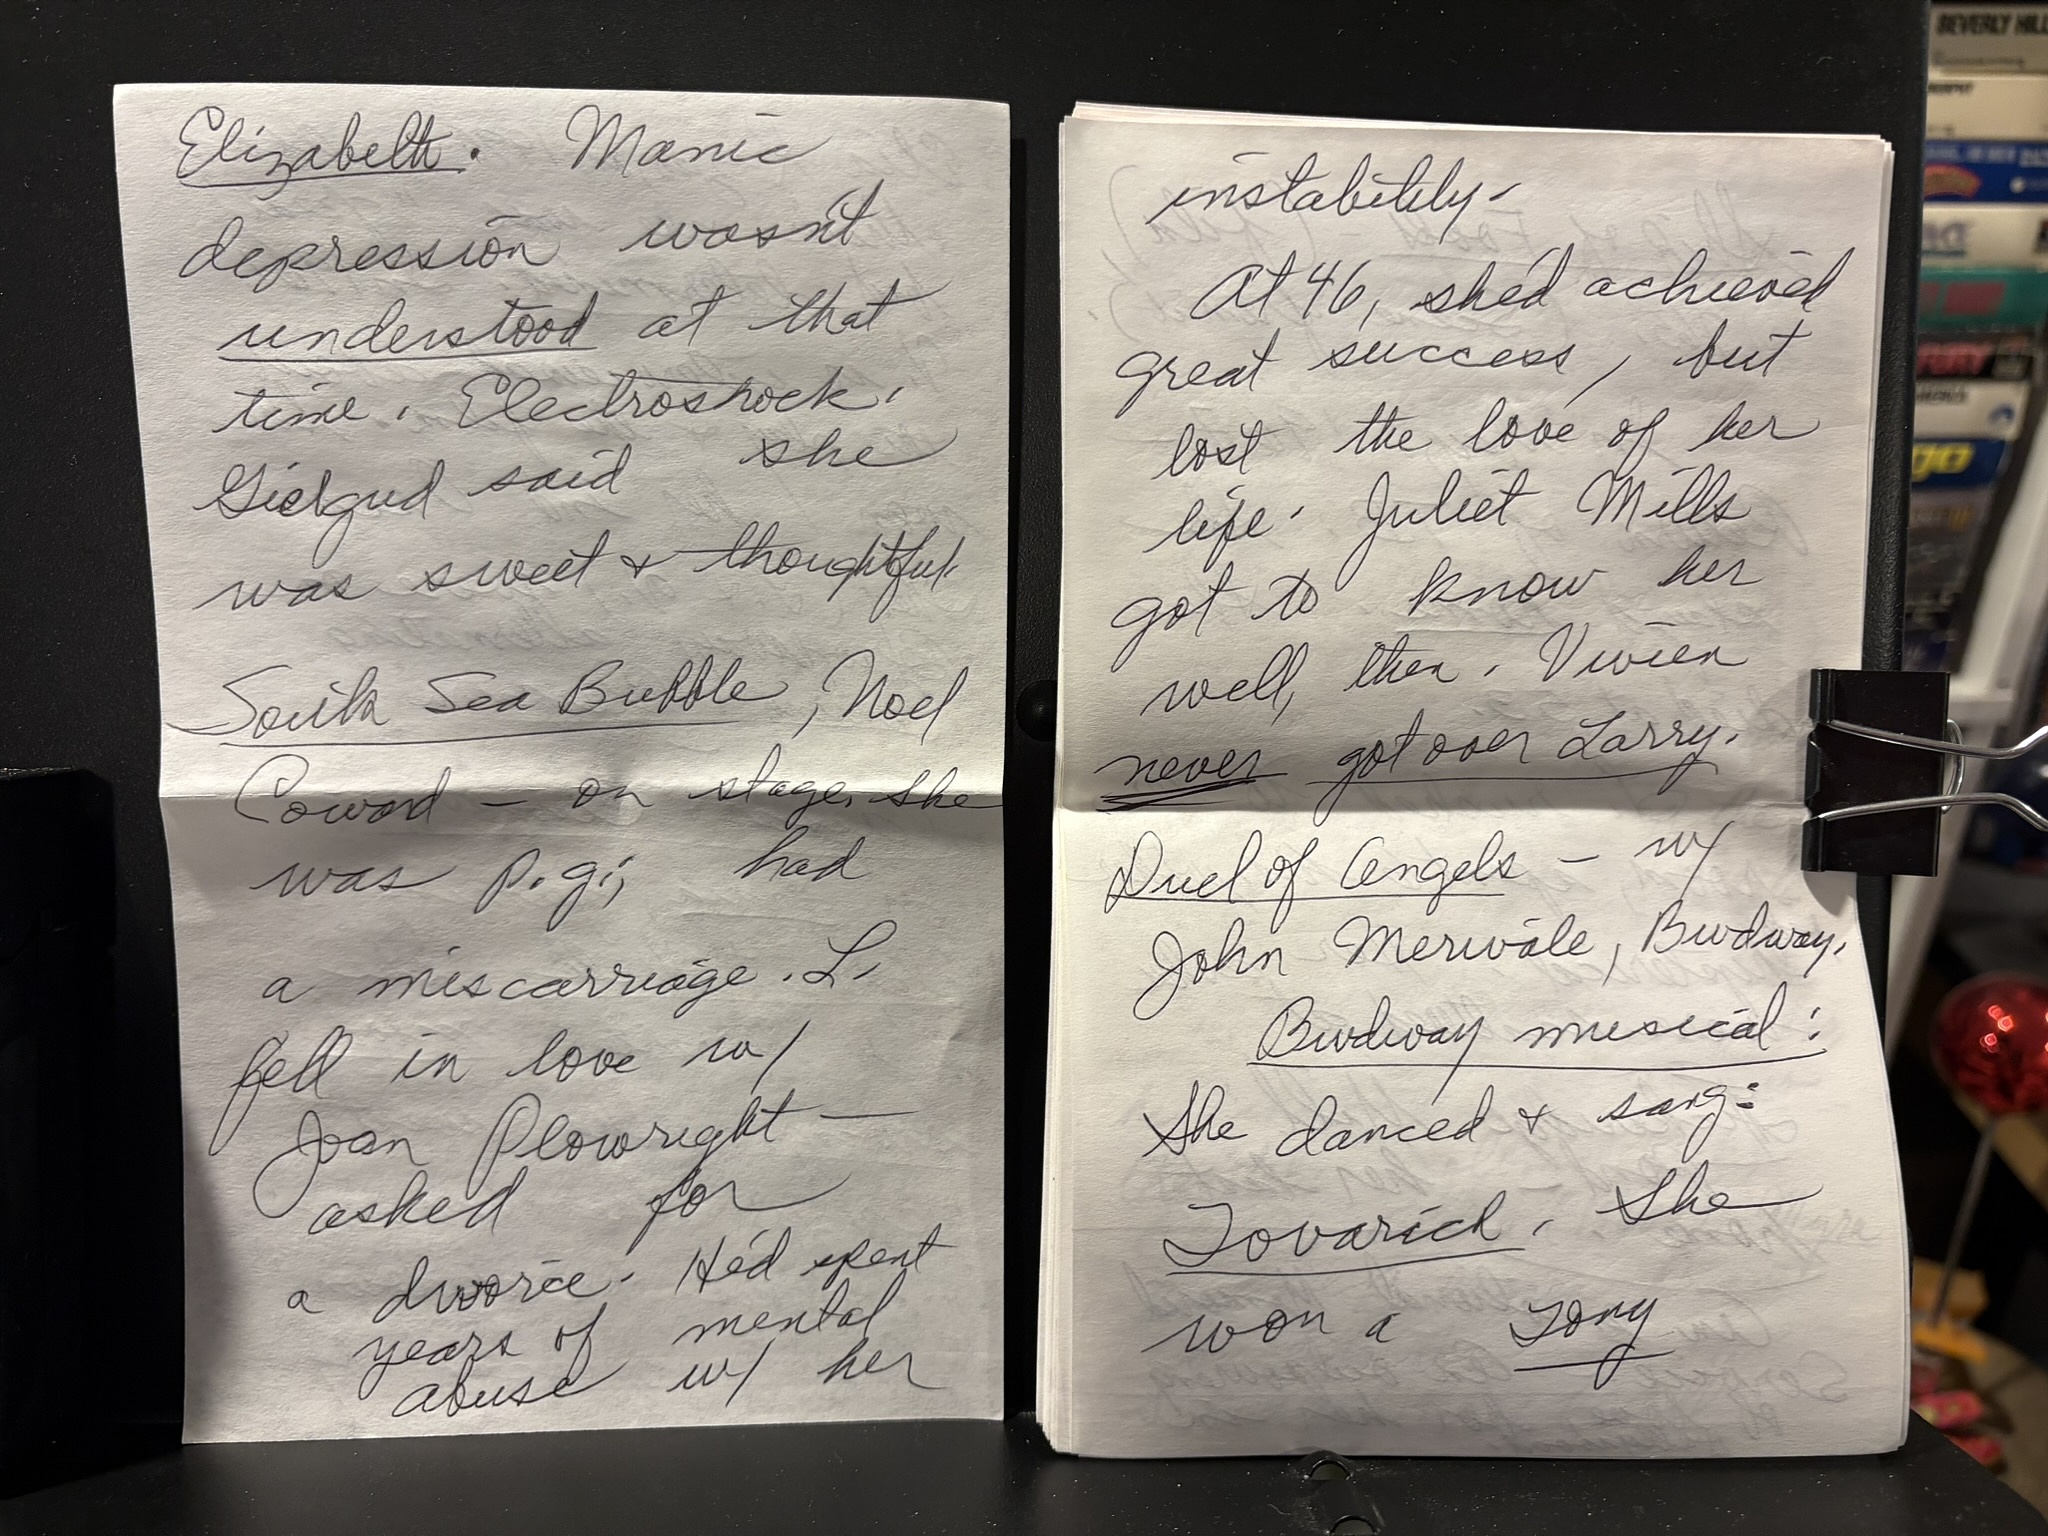 Elizabeth. Manic
depression wasn't
understood at that
time. Electroshock.
Gielgud said she
was sweet & thoughtful.
South Sea Bubble, Noel
Coward – on stage. she
was p.g.; had
a miscarriage. L.
fell in love w/
Joan Plowright —
asked for
a divorce. He'd spent
years of mental
abuse w/ her
instability.
At 46, she'd achieved
great success, but
lost the love of her
life. Juliet Mills
got to know her
well, then. Vivien
never got over Larry.
Duel of Angels – w/
John Merivale, Brdway.
Brdway musical:
She danced & sang:
Tovarich. She
won a Tony
BEVERLY HILL